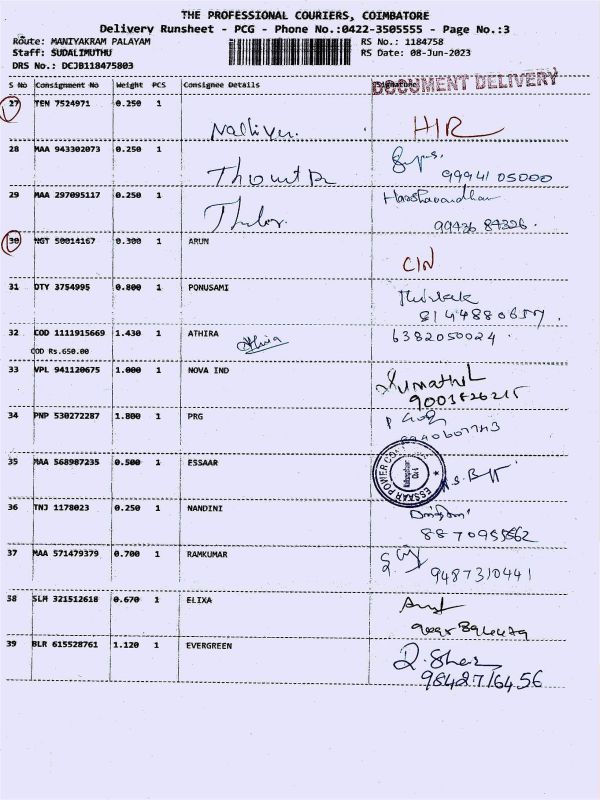 THE PROFESSIONAL COURIERS, COIMBATORE
Delivery Runsheet - PCG - Phone No.:0422-3505555 - Page No.:3
Route: MANIYAKRAM PALAYAM RS No.: 1184758
Staff: SUDALIMUTHU RS Date: 08-Jun-2023
DRS No.: DCJB118475803
DOCUMENT DELIVERY
S No Consignment No Weight PCS Consignee Details Signature
27 TEN 7524971 0.250 1
H/R
28 MAA 943302073 0.250 1
99941 05000
29 MAA 297095117 0.250 1 Harshavardhan
99436 84326.
30 NGT 50014167 0.300 1 ARUN
CIN
31 OTY 3754995 0.800 1 PONUSAMI
32 COD 1111915669 1.430 1 ATHIRA 6382050024.
COD Rs.650.00 Athira
33 VPL 941120675 1.000 1 NOVA IND
34 PNP 530272287 1.800 1 PRG
35 MAA 568987235 0.500 1 ESSAAR
36 TNJ 1178023 0.250 1 NANDINI
37 MAA 571479379 0.700 1 RAMKUMAR
9487310441
38 SLM 321512618 0.670 1 ELIXA
39 BLR 615528761 1.120 1 EVERGREEN
9842716456